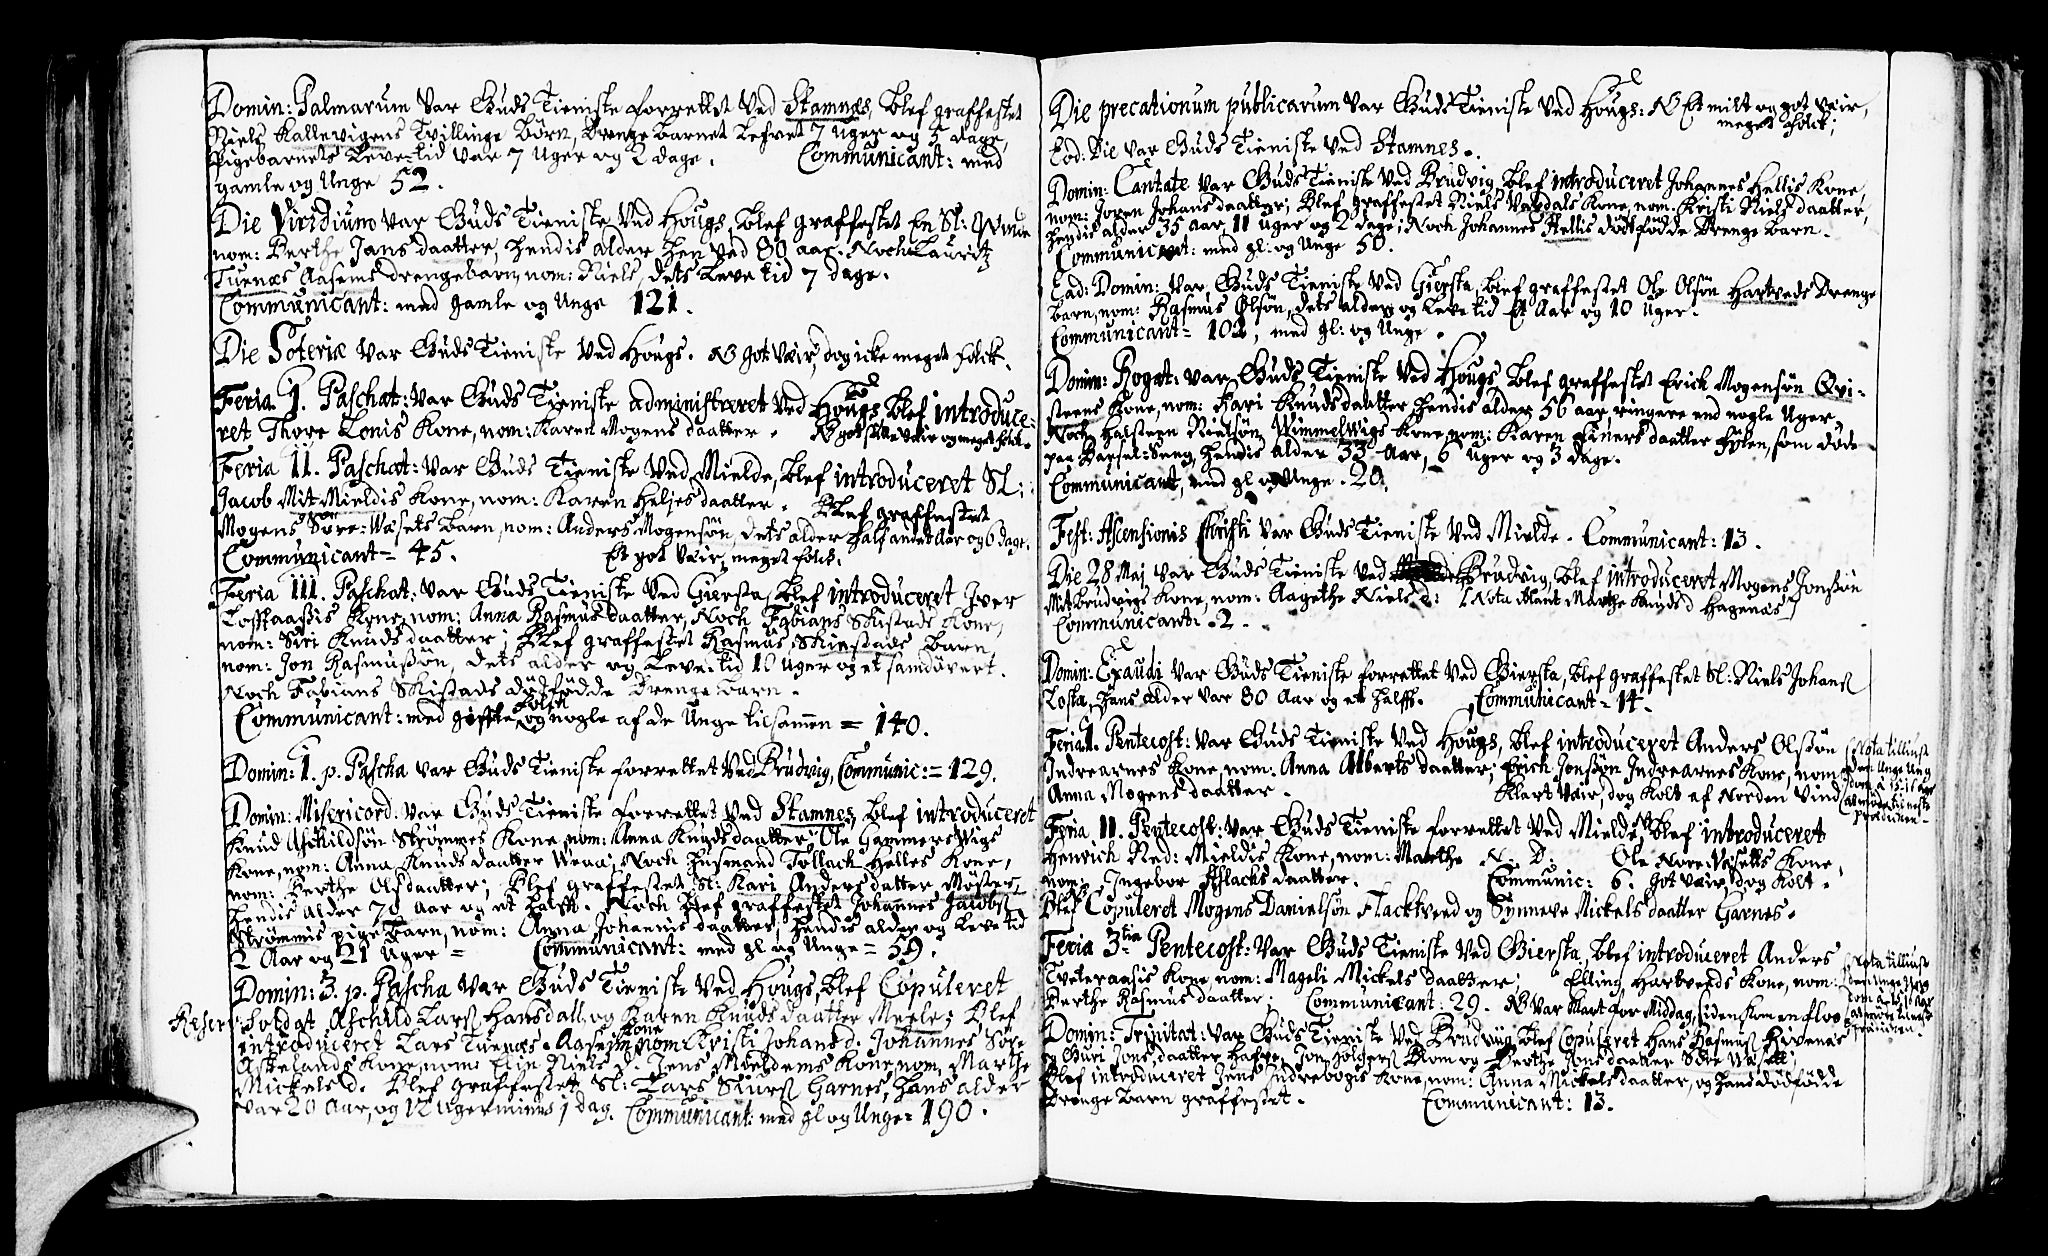 Domin: Palmarum var Guds Tieniste forrettet ved Stamnes, blef graffestet
Niels Kallevigens Tvillinge Börn, Drenge barnet lefvet 7 Uger og 5 dage,
Pigebarnets Leve-tid var 7 Uger og 2 dage. Communicant: med
gamle og Unge 52.
Die Viridium var Guds Tieniste ved Hougs, blef graffestet En Sl:
nom: Berthe Jans daatter, hendis alder hen ved 80 aar. Noch Lauritz
Tuenæs Aasens drengebarn, nom: Niels, dets Leve tid 7 dage.
Communicant: med gamle og Unge 121.
Die Soteriæ var Guds Tieniste ved Hougs. NB got veir, dog icke meget folck.
Feria I. Paschat: var Guds Tieniste administreret ved Hougs, blef introduce-
ret Thore Lonis Kone, nom: Karen Mogens daatter. NB got veir og meget folck.
Feria II. Paschat: var Guds Tieniste ved Mielde, blef introduceret Sl:
Jacob Mit-Mieldis Kone, nom: Karen Heljes daatter. Blef graffestet
Mogens Söre-Wæsets barn, nom: Anders Mogensön, dets alder half andet Aar og 6 dage.
Communicant = 45. Et got veir, meget folck.
Feria III. Paschat: var Guds Tieniste ved Giersta, blef introduceret Iver
Kone, nom: Anna Rasmus daatter, Noch Fabians Skistads Kone,
nom: Siri Knuds daatter; Blef graffestet Rasmus Skiestads barn,
nom: Jon Rasmussön, dets alder og Leve-tid 10 Uger og et
Noch Fabians Skistads dödfödde Drenge barn.
Communicant: med gifte folck og nogle af de Unge tilsamen = 140.
Domin: 1. p. Pascha var Guds Tieniste forrettet ved Brudvig, Communic: = 129.
Domin: Misericord: var Guds Tieniste forrettet ved Stamnes, blef introduceret
Knud Aschildsön Strömmes Kone, nom: Anna Knuds daatter, Ole Gammersvigs
Kone, nom: Anna Knuds daatter Noch Husmand Tollach Helles Kone,
nom: Berthe Olsdaatter; Blef graffestet Sl: Kari Anders datter
hendis Alder 70 Aar og et halft. Noch blef graffestet Johannes Jacobs
Strömmis pige barn, nom: Anna Johannis daatter, hendis alder og Leve tid
2 Aar og 21 Uger = Communicant: med gl og Unge = 59.
Domin: 3. p. Pascha var Guds Tieniste ved Hougs, blef Copuleret
Reserv: Soldat Aschild Lars Hansdall, og Karen Knuds daatter Blef
introduceret Lars Tuenæs-Aasens Kone nom: Kristi Johans d. Johannes Söre
Askelands Kone, nom: Elin Niels d. Jens Mieldems Kone, nom: Marthe
Mickels d. Blef graffestet Sl: Lars Siurs Garnes, hans alder
var 20 Aar, og 12 Uger minus 1 dag. Communicant: med gl og Unge = 190.
Die precationum publicarum var Guds Tieniste ved Hougs: NB Et milt og got veir,
meget folck;
Eod: Die var Guds Tieniste ved Stamnes.
Domin: Cantate var Guds Tieniste ved Brudvig, blef introduceret Johannes Hellis Kone,
nom: Joren Johans daatter, Blef graffestet Niels Vaxdals Kone, nom: Kristi Niels daatter,
hendis alder 35 aar 11 Uger og 2 dage; Noch Johannes Hellis dödfödde Drenge barn.
Communicant: med gl: og Unge 50.
Ead: Domin: var Guds Tieniste ved Giersta, blef graffestet Ole Olsön Hartveds Drenge
barn, nom: Rasmus Olsön, dets alder og Leve tid Et Aar og 10 Uger.
Communicant = 102, med gl: og Unge.
Domin: Rogat: var Guds Tieniste ved Hougs, blef graffestet Erich Mogensön Qvi-
steens Kone, nom: Kari Knuds daatter, hendis alder 56 aar ringere end nogle Uger,
Noch Halsteen Nielsön Wimmelwigs Kone, nom: Karen Finers daatter som döde
paa Barsel-Seng, hendis alder 33 Aar, 6 Uger og 3 dage.
Communicant, med gl og Unge. 20.
Fest: Ascensionis Christi var Guds Tieniste ved Mielde. Communicant: 13.
Die 28 Maj var Guds Tieniste ved Brudvig, blef introduceret Mogens Jonssön
Mitbrudvigs Kone, nom: Aagethe Niels d: [Nota blant Marthe Knuds d Hagenæs]
Communicant: 2.
Domin: Exaudi var Guds Tieniste forrettet ved Giersta, blef graffestet Sl: Niels Johans
Losta, hans alder var 80 Aar og et halft. Communicant = 14.
Feria I. Pentecost: var Guds Tieniste ved Hougs, blef introduceret Anders Olssön
Indrearnes Kone, nom: Anna Alberts daatter; Erich Jonssön Indrearnes Kone, nom:
Anna Mogens daatter. Klart veir, dog kolt af Norden Vind.
Feria II. Pentecost: var Guds Tieniste forrettet ved Mielde, blef introduceret
Henrich Ned: Mieldis Kone, nom: Marthe N. D: Ole Nore-Vasetts Kone,
nom: Ingebor Aslacks daatter. Communic: 6. got veir, dog kolt.
Blef Copuleret Mogens Danielsön Flacktved og Synneve Mickels daatter Garnes.
Feria 3tia Pentecost: var Guds Tieniste ved Giersta, blef introduceret Anders
Tveteraasis Kone, nom: Mageli Mickels daatter; Elling Hartveds Kone, nom:
Berthe Rasmus daatter; Communicant: 29. NB var klart for Middag, siden kom en
Domin: Trinitat: var Guds Tieniste ved Brudvig, blef Copuleret Hans Rasmus Rivenæs
og Guri Jons daatter Jon Holgers Blom og Berthe Jons daatter Söre Vasett;
Blef introduceret Jens Indrebögis Kone, nom: Anna Mickels daatter, og hans dödfödde
Drenge barn graffestet. Communicant: 13.